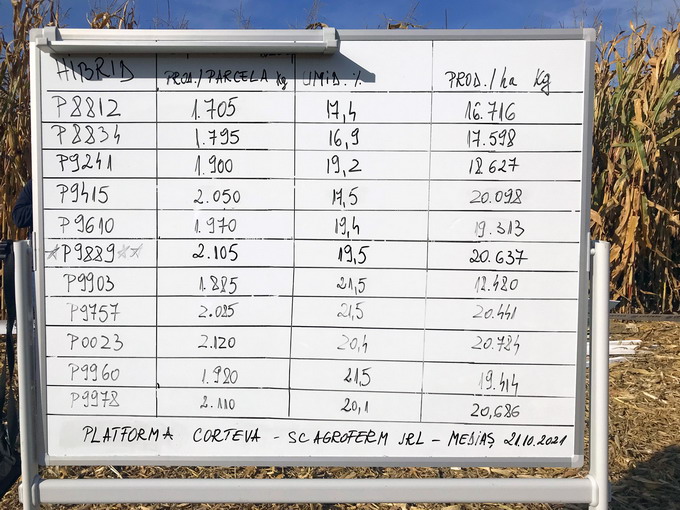 HIBRID PROD./PARCELA Kg UMID. % PROD./ha Kg
P8812 1.705 17,4 16.716
P8834 1.795 16,9 17.598
P9241 1.900 19,2 18.627
P9415 2.050 17,5 20.098
P9610 1.970 19,4 19.313
*P9889** 2.105 19,5 20.637
P9903 1.885 21,5 18.480
P9757 2.085 21,5 20.441
P0023 2.120 20,4 20.784
P9960 1.980 21,5 19.414
P9978 2.110 20,1 20,686
PLATFORMA CORTEVA - SC AGROFERM SRL - MEDIAȘ 21.10.2021